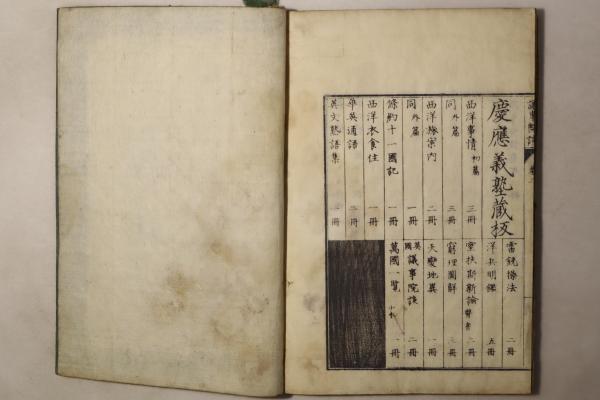 慶應義塾蔵板
西洋事情 初篇 三冊
同 外篇 三冊
西洋旅案内 二冊
同 外篇 一冊
條約十一國記 一冊
西洋衣食住 一冊
華英通語 二冊
英文熟語集 一冊
雷銃操法 二冊
洋兵明鑑 五冊
掌扶斯新論 二冊
窮理圖解 三冊
天變地異 一冊
英國議事院談 二冊
萬國一覧 一冊